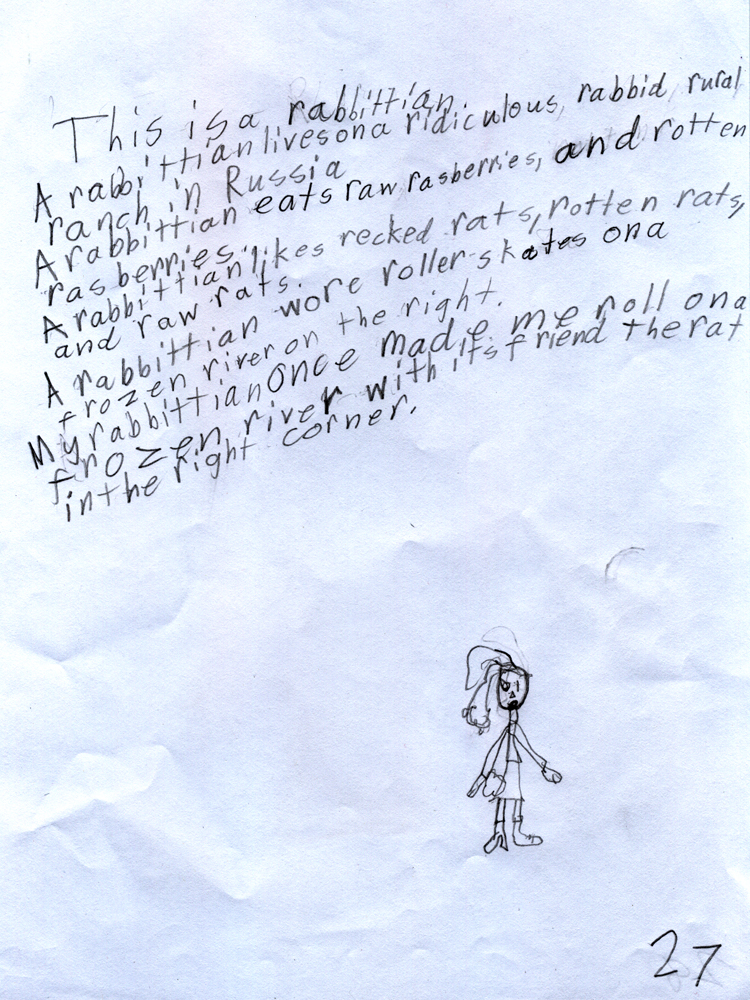 This is a rabbittian.
A rabbittian lives on a ridiculous, rabbid, rural
ranch in Russia
A rabbittian eats raw rasberries, and rotten
rasberries.
A rabbittian likes recked rats, rotten rats,
and raw rats.
A rabbittian wore roller-skates on a
frozen river on the right.
My rabbittian once made me roll on a
frozen river with its friend the rat
in the right corner.
27